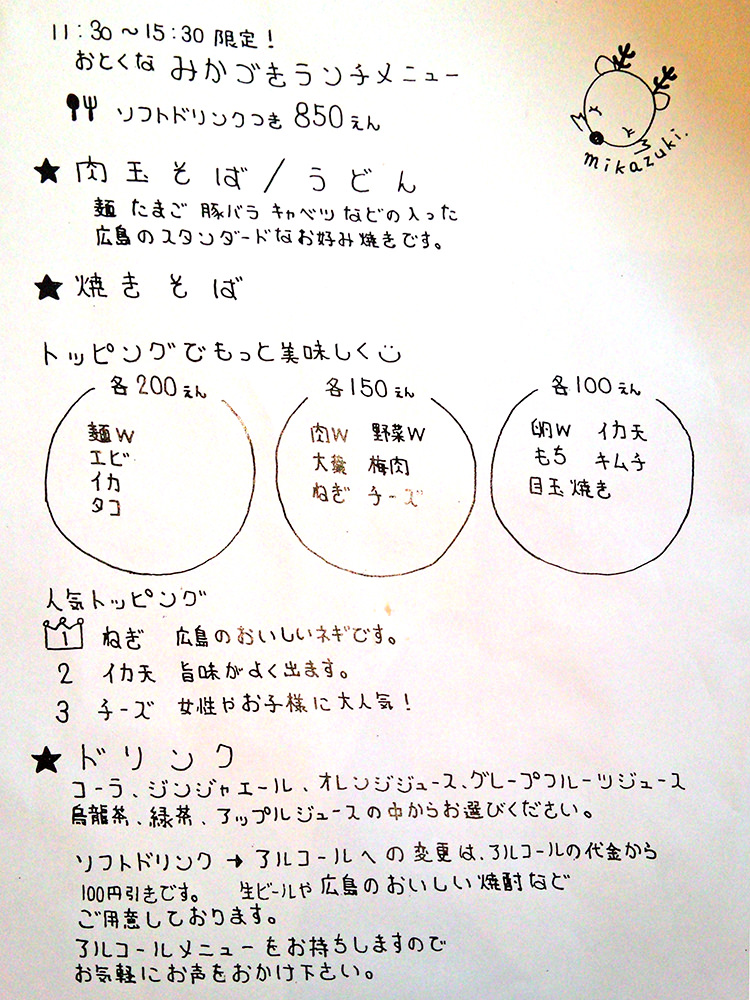 11:30～15:30 限定！
おとくな みかづきランチメニュー
ソフトドリンクつき 850えん
mikazuki.
★ 肉玉そば／うどん
麺 たまご 豚バラ キャベツなどの入った
広島のスタンダードなお好み焼きです。
★ 焼きそば
トッピングでもっと美味しく
各200えん
麺W
エビ
イカ
タコ
各150えん
肉W 野菜W
大葉 梅肉
ねぎ チーズ
各100えん
卵W イカ天
もち キムチ
目玉焼き
人気トッピング
1 ねぎ 広島のおいしいネギです。
2 イカ天 旨味がよく出ます。
3 チーズ 女性やお子様に大人気！
★ ドリンク
コーラ、ジンジャエール、オレンジジュース、グレープフルーツジュース
烏龍茶、緑茶、アップルジュースの中からお選びください。
ソフトドリンク → アルコールへの変更は、アルコールの代金から
100円引きです。 生ビールや広島のおいしい焼酎など
ご用意しております。
アルコールメニューをお持ちしますので
お気軽にお声をおかけ下さい。